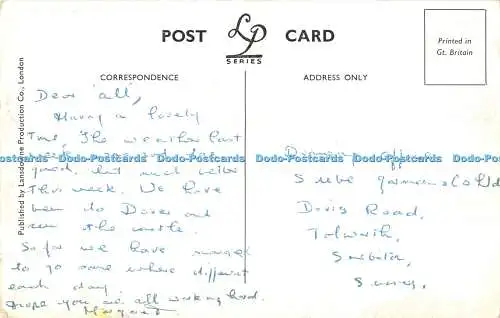 POST LP CARD
SERIES
Printed in
Gt. Britain
CORRESPONDENCE
ADDRESS ONLY
Published by Lansdowne Production Co., London
Dear 'all',
Having a lovely
Time, The weather last
Dodo-Postcards Dodo-Postcards Dodo-Postcards Dodo-Postcards Dodo-Postcards
good, but much
This week. We have
been to Dover and
seen the castle.
So far we have managed
to go some where different
each day.
Hope you are all working hard.
Margaret
Drawing office
Davis Road,
Tolworth,
Surbiton,
Surrey.